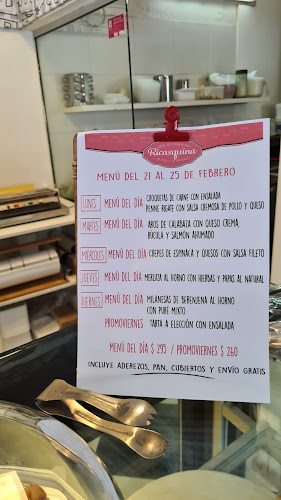 Ricasquina
MENÚ DEL 21 AL 25 DE FEBRERO
LUNES MENÚ DEL DÍA CROQUETAS DE CARNE CON ENSALADA
PENNE RIGATE CON SALSA CREMOSA DE POLLO Y QUESO
MARTES MENÚ DEL DÍA AROS DE CALABAZA CON QUESO CREMA,
RÚCULA Y SALMÓN AHUMADO
MIÉRCOLES MENÚ DEL DÍA CREPES DE ESPINACA Y QUESOS CON SALSA FILETO
JUEVES MENÚ DEL DÍA MERLUZA AL HORNO CON HIERBAS Y PAPAS AL NATURAL
VIERNES MENÚ DEL DÍA MILANESAS DE BERENJENA AL HORNO
CON PURÉ MIXTO
PROMOVIERNES TARTA A ELECCIÓN CON ENSALADA
MENÚ DEL DÍA $ 295 / PROMOVIERNES $ 260
INCLUYE ADEREZOS, PAN, CUBIERTOS Y ENVÍO GRATIS